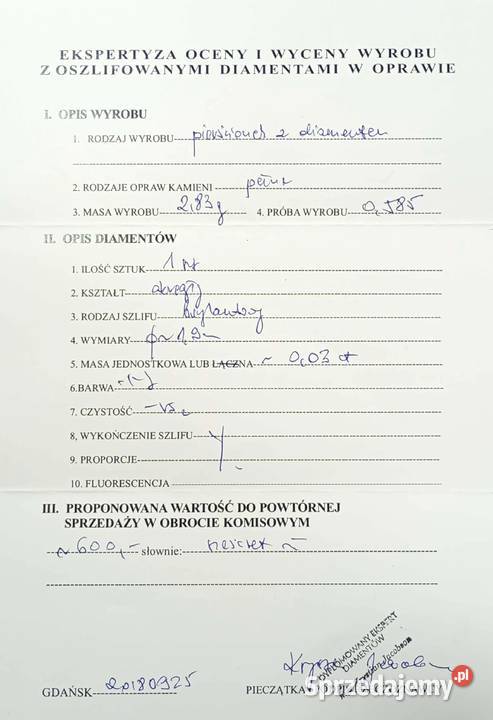 EKSPERTYZA OCENY I WYCENY WYROBU
Z OSZLIFOWANYMI DIAMENTAMI W OPRAWIE
I. OPIS WYROBU
1. RODZAJ WYROBU pierścionek z diamentem
2. RODZAJE OPRAW KAMIENI pełna
3. MASA WYROBU 2,83g 4. PRÓBA WYROBU 0,585
II. OPIS DIAMENTÓW
1. ILOŚĆ SZTUK 1 szt
2. KSZTAŁT okrągły
3. RODZAJ SZLIFU brylantowy
4. WYMIARY ~ 1,9
5. MASA JEDNOSTKOWA LUB ŁĄCZNA ~ 0,03 ct
6.BARWA
7. CZYSTOŚĆ
8, WYKOŃCZENIE SZLIFU
9. PROPORCJE
10. FLUORESCENCJA
III. PROPONOWANA WARTOŚĆ DO POWTÓRNEJ
SPRZEDAŻY W OBROCIE KOMISOWYM
~ 600,- słownie: sześćset
DYPLOMOWANY EKSPERT
DIAMENTÓW
GDAŃSK 20180925 PIECZĄTKA
Sprzedajemy.pl